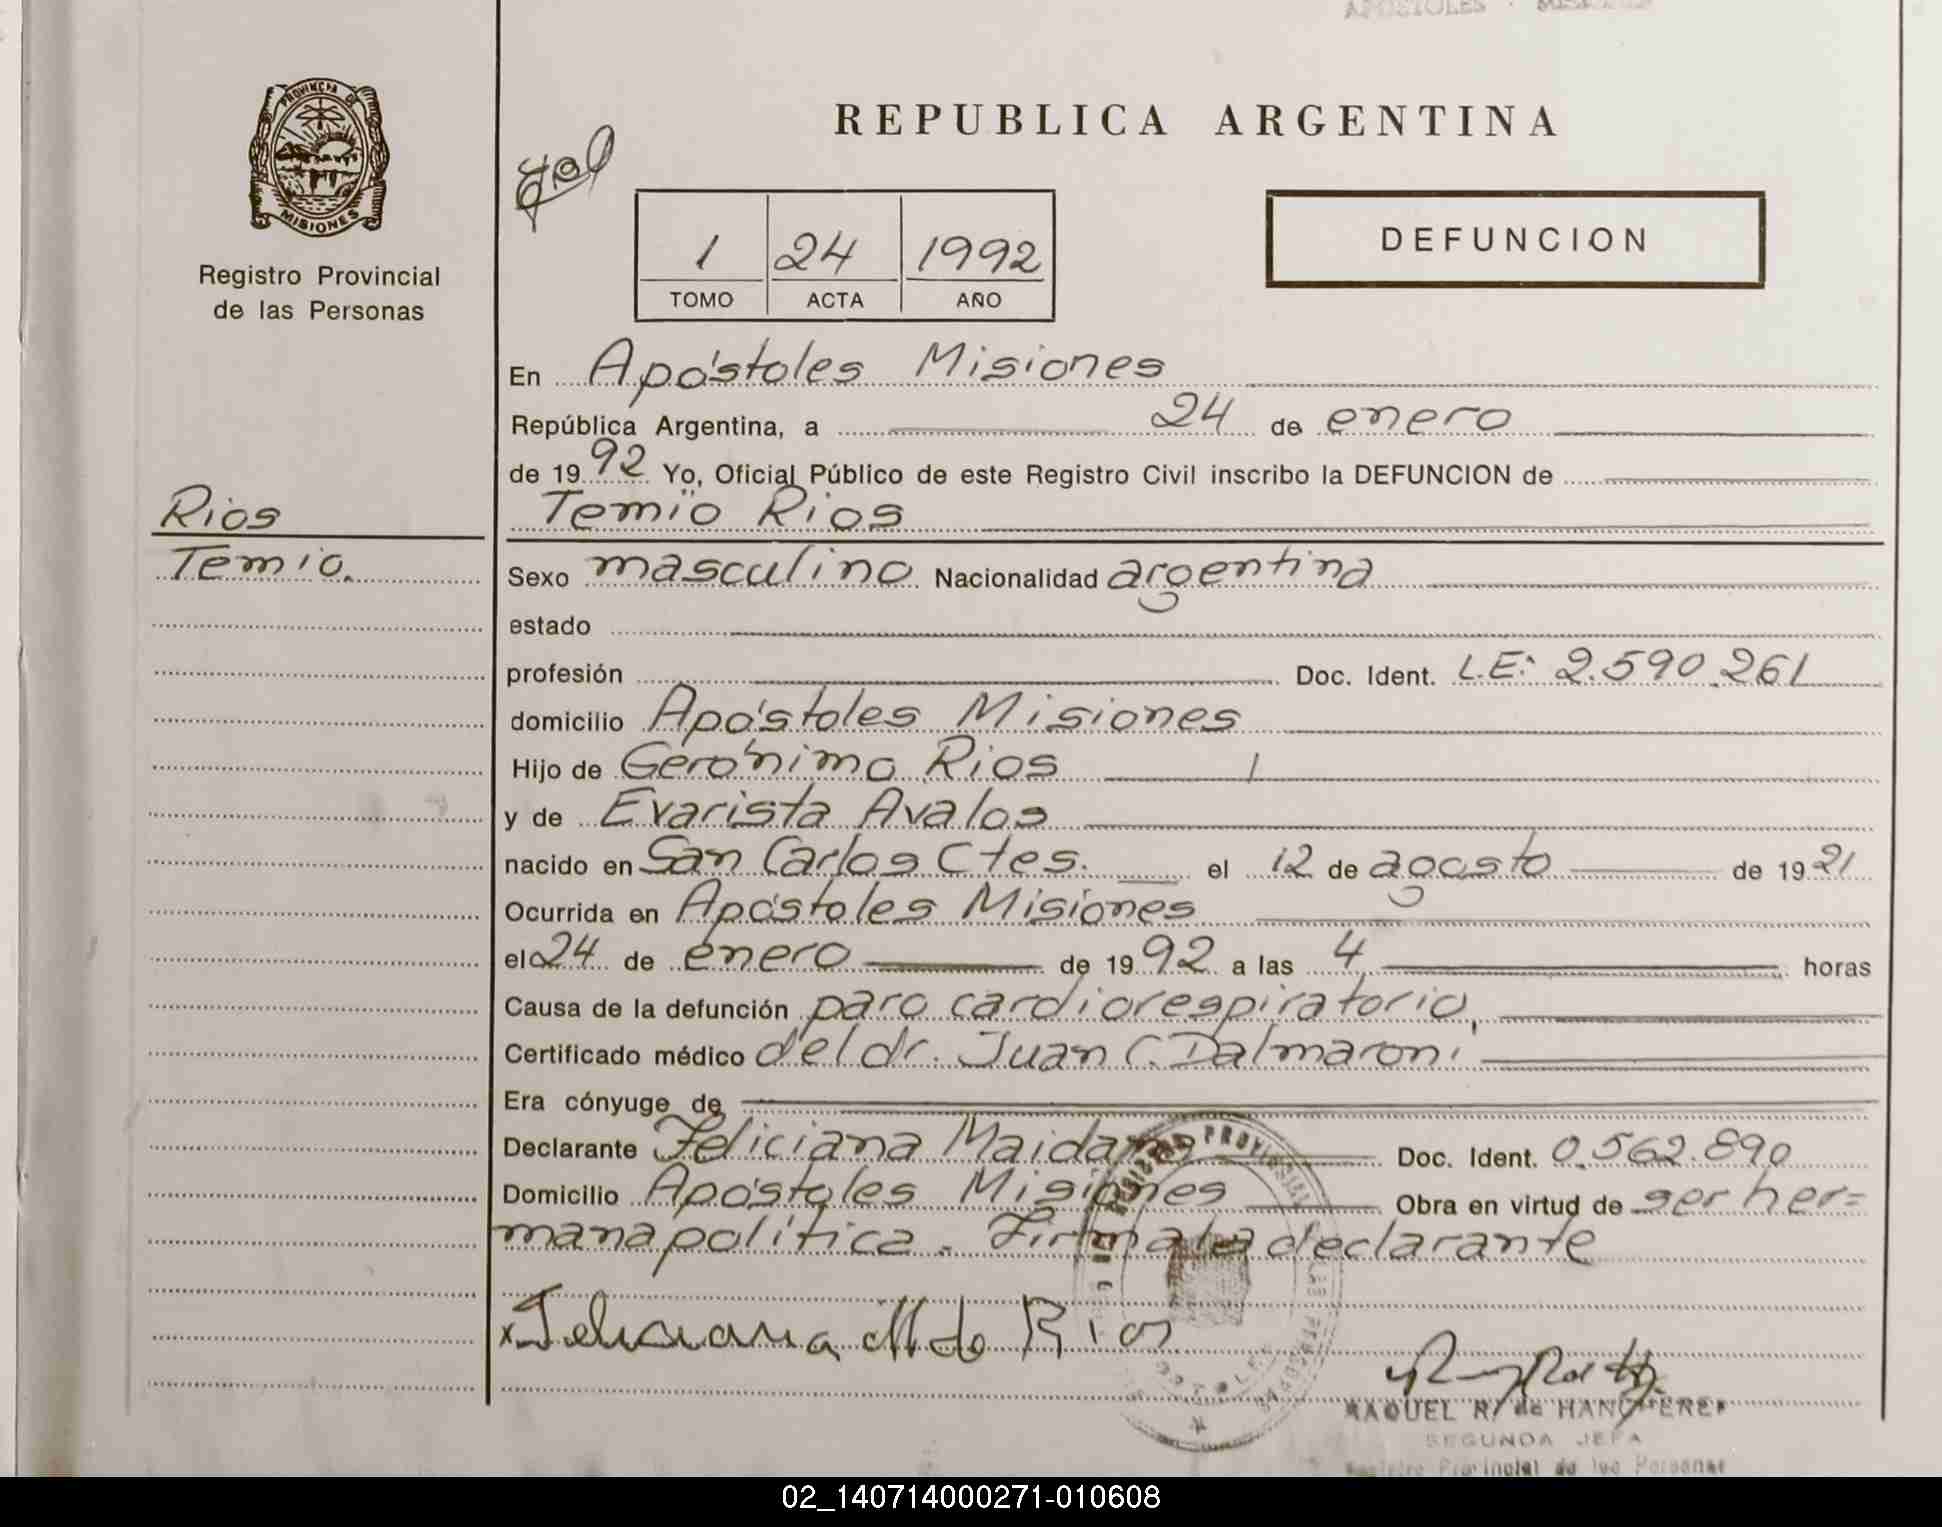 APOSTOLES - MISIONES
PROVINCIA DE
MISIONES
Registro Provincial
de las Personas
REPUBLICA ARGENTINA
1 24 1992
TOMO ACTA AÑO
DEFUNCION
En Apóstoles Misiones
República Argentina, a 24 de enero
de 1992 Yo, Oficial Público de este Registro Civil inscribo la DEFUNCION de
Rios
Temïo Rios
Temio.
Sexo masculino Nacionalidad argentina
estado
profesión Doc. Ident. L.E: 2.590.261
domicilio Apóstoles Misiones
Hijo de Gerónimo Rios
y de Evarista Avalos
nacido en San Carlos Ctes. el 12 de agosto de 1921
Ocurrida en Apóstoles Misiones
el 24 de enero de 1992 a las 4 horas
Causa de la defunción paro cardiorespiratorio,
Certificado médico del dr. Juan C. Dalmaroni
Era cónyuge de
Declarante Feliciana Maidana Doc. Ident. 0.562.890
Domicilio Apóstoles Misiones Obra en virtud de ser her=
mana política. Firma la declarante
x Feliciana M de Rios
RAQUEL R. de
SEGUNDA JEFA
Registro Provincial de las Personas
02_140714000271-010608